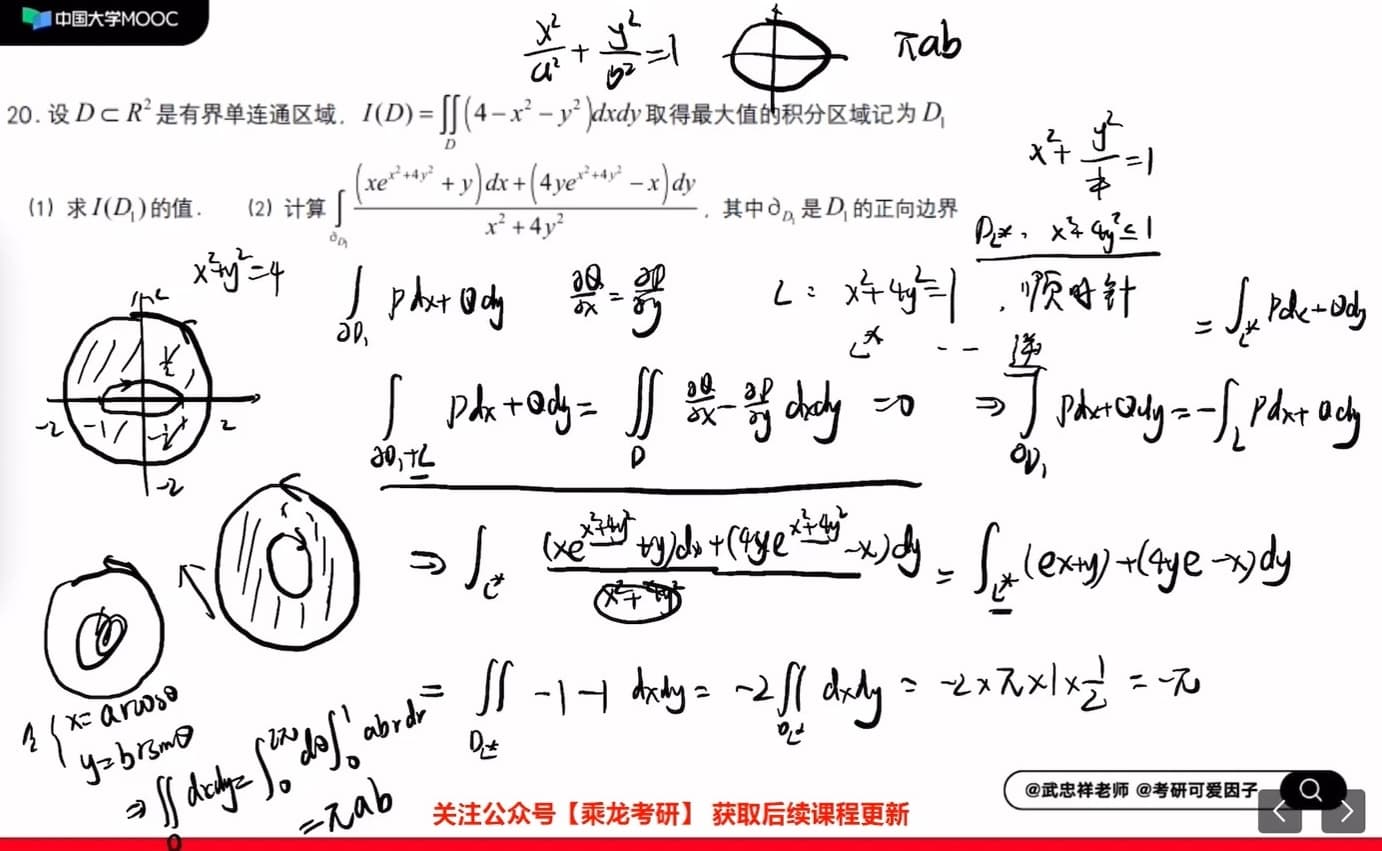 中国大学MOOC
x²/a² + y²/b² = 1
πab
20. 设 D ⊂ R² 是有界单连通区域. I(D) = ∬_D (4 − x² − y²)dxdy 取得最大值的积分区域记为 D₁
x² + y²/¼ = 1
(1) 求 I(D₁) 的值.
(2) 计算 ∫_{∂D₁} [(xe^{x²+4y²} + y)dx + (4ye^{x²+4y²} − x)dy] / (x² + 4y²), 其中 ∂_{D₁} 是 D₁ 的正向边界
D_{L*}: x²+4y² ≤ 1
x²+y²=4
∫_{∂D₁} Pdx+Qdy
∂Q/∂x = ∂P/∂y
L: x²+4y²=1, 顺时针
L* -- 逆
= ∫_{L*} Pdx+Qdy
2
½
-2 -1 2
-2
∫_{∂D₁+L} Pdx+Qdy = ∬_D ∂Q/∂x − ∂P/∂y dxdy = 0
⇒ ∫_{∂D₁} Pdx+Qdy = −∫_L Pdx+Qdy
⇒ ∫_{L*} (xe^{x²+4y²}+y)dx+(4ye^{x²+4y²}−x)dy / x²+4y² = ∫_{L*} (ex+y)+(4ye−x)dy
= ∬_{D_{L*}} −1−1 dxdy = −2∬_{D_{L*}} dxdy = −2×π×1×½ = −π
令 { x=arcosθ
y=brsinθ
⇒ ∬_D dxdy = ∫_0^{2π} dθ ∫_0^1 abrdr
= πab
@武忠祥老师 @考研可爱因子
关注公众号【乘龙考研】 获取后续课程更新